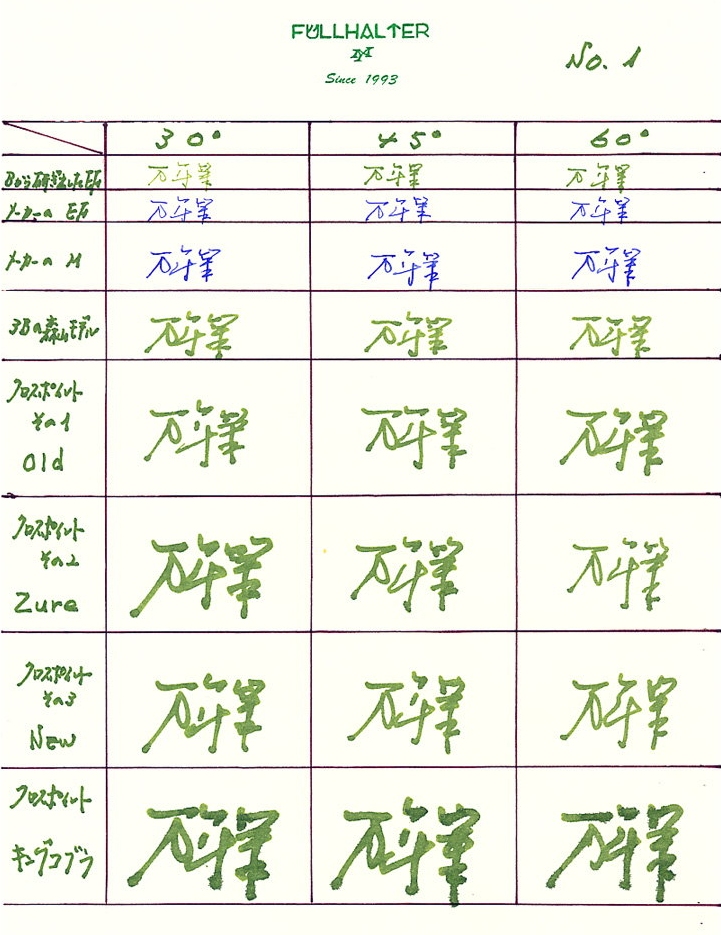 FÜLLHALTER
Since 1993
No. 1
30° 45° 60°
Bから研ぎ出したEF 万年筆 万年筆 万年筆
メーカーの EF 万年筆 万年筆 万年筆
メーカーの M 万年筆 万年筆 万年筆
3Bの森山モデル 万年筆 万年筆 万年筆
クロスポイント
その1
Old
万年筆 万年筆 万年筆
クロスポイント
その2
Zure
万年筆 万年筆 万年筆
クロスポイント
その3
New
万年筆 万年筆 万年筆
クロスポイント
キングコブラ
万年筆 万年筆 万年筆